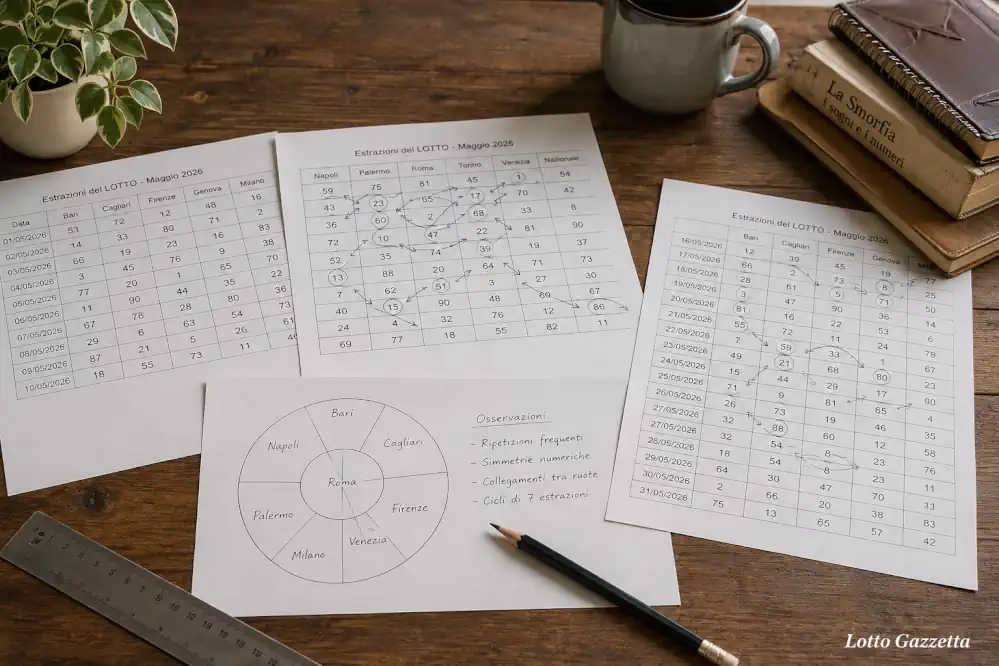 Estrazioni del LOTTO - Maggio 2026
Data Bari Cagliari Firenze Genova Milano
01/05/2026 53 72 12 48 16
02/05/2026 14 33 80 71 2
03/05/2026 66 19 23 16 83
04/05/2026 3 45 76 9 38
05/05/2026 77 20 1 65 70
06/05/2026 11 90 44 35 22
07/05/2026 67 78 28 80 36
08/05/2026 29 6 63 54 73
09/05/2026 87 21 5 26 61
10/05/2026 18 55 73 11
Estrazioni del LOTTO - Maggio 2026
Napoli Palermo Roma Torino Venezia Nazionale
59 75 81 45 1 54
43 23 65 17 70 42
36 60 2 68 33 8
72 10 47 22 81 90
52 35 74 39 19 37
13 88 20 64 71 73
7 62 51 3 27 30
40 15 90 48 60 67
24 4 32 76 12 86
69 77 18 55 82 11
Estrazioni del LOTTO - Maggio 2026
Bari Cagliari Firenze Genova
16/05/2026 12 39 45 19 77
17/05/2026 66 2 73 8 25
18/05/2026 28 61 5 71 50
19/05/2026 3 47 90 36 14
20/05/2026 81 16 22 53 6
21/05/2026 55 72 11 24 78
22/05/2026 7 59 33 1 67
23/05/2026 49 21 68 80 23
24/05/2026 15 44 29 17 90
25/05/2026 71 9 81 65 4
26/05/2026 26 73 19 46 35
27/05/2026 32 88 60 12 58
27/05/2026 32 54 8 23 76
28/05/2026 18 54 8 23 11
29/05/2026 64 30 47 70 33
30/05/2026 2 66 20 38 83
31/05/2026 75 13 65 57 42
La Smorfia
i sogni e i numeri
Bari
Napoli
Cagliari
Roma
Palermo
Firenze
Milano
Venezia
Osservazioni
- Ripetizioni frequenti
- Simmetrie numeriche
- Collegamenti tra ruote
- Cicli di 7 estrazioni
Lotto Gazzetta